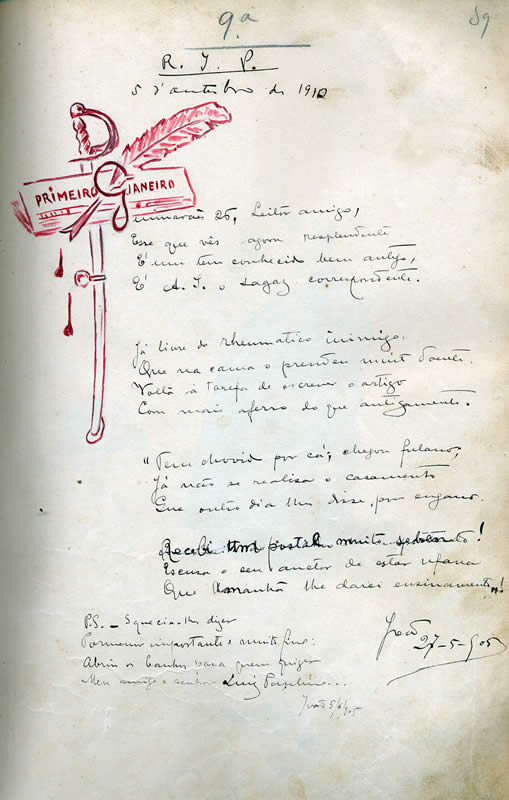 9.ª
59
R. I. P.
5 d'outubro de 1910
PRIMEIRO JANEIRO
Guimarães 26, Leitor amigo,
Esse que vês agora resplendente
É um teu conhecido bem antigo,
É A. I. o sagaz correspondente.
Já livre do rheumatico inimigo,
Que na cama o prendeu muit doente.
Volta á tarefa de escrever o artigo
Com mais aferro do que antigamente.
"Tem chovido por cá; chegou fulano,
Já não se realisa o casamento
Que outro dia lhe disse, por engano.
Recebi um postal muito
Escusa o seu auctor de estar ufano
Que ámanhã lhe darei ensinamento"!
P.S. - Esquecia-lhe dizer
Pormenor importante e muito fino:
Abriu os banhos para quem quizer
Meu amigo e senhor Luiz
João
27-5-905
João 5/6/905